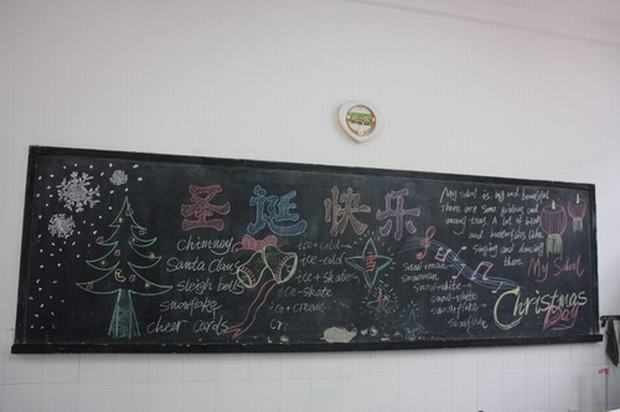 圣诞快乐
Chimney
Santa Claus
sleigh bells
snowflake
cheer cards
ice+cold→
ice-cold
ice+skate→
ice-skate
snow+man→
snowman
snow+white→
snow-white
snowflake
My school is big and beautiful
There are some
many trees. A lot of birds
and butterflies like
singing and dancing
there.
My School
Christmas
Day